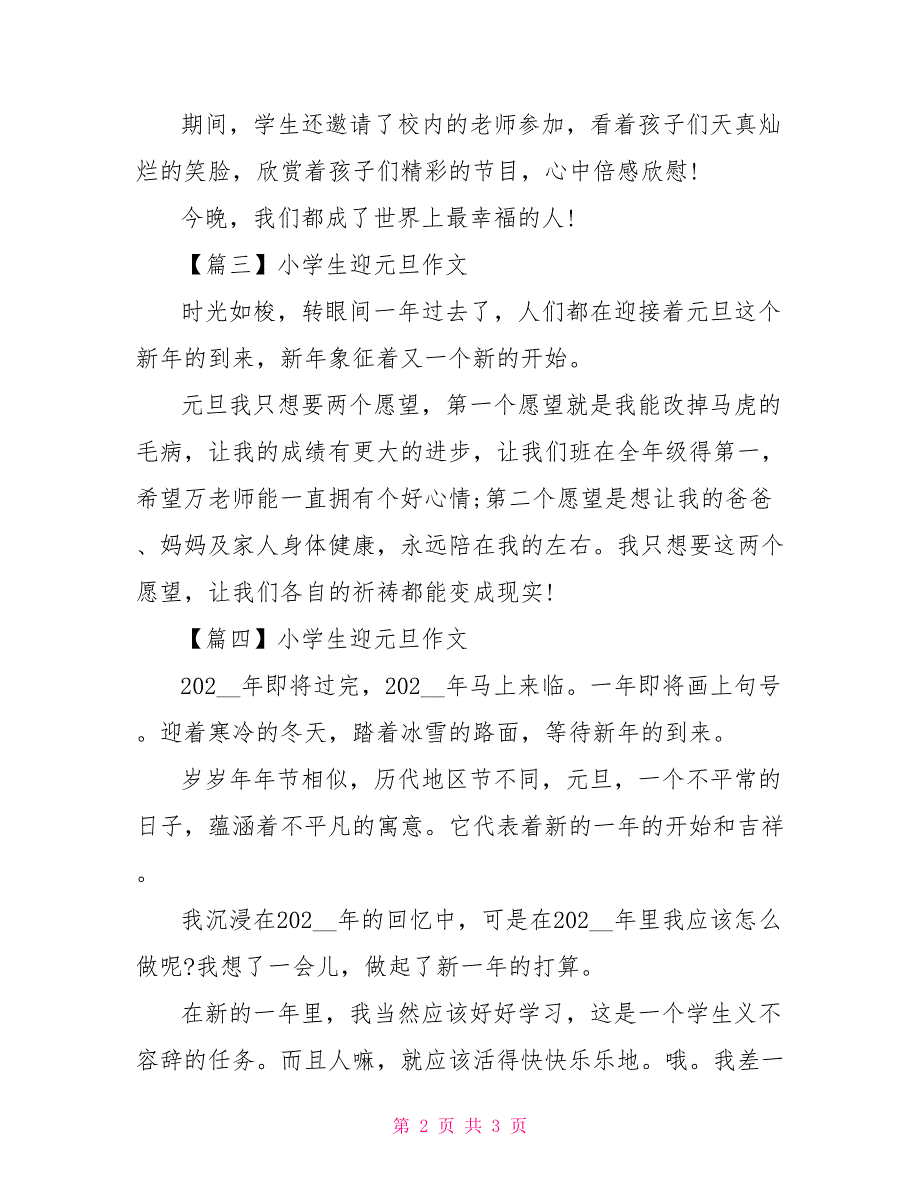 期间，学生还邀请了校内的老师参加，看着孩子们天真灿
烂的笑脸，欣赏着孩子们精彩的节目，心中倍感欣慰!
今晚，我们都成了世界上最幸福的人!
【篇三】小学生迎元旦作文
时光如梭，转眼间一年过去了，人们都在迎接着元旦这个
新年的到来，新年象征着又一个新的开始。
元旦我只想要两个愿望，第一个愿望就是我能改掉马虎的
毛病，让我的成绩有更大的进步，让我们班在全年级得第一，
希望万老师能一直拥有个好心情;第二个愿望是想让我的爸爸
、妈妈及家人身体健康，永远陪在我的左右。我只想要这两个
愿望，让我们各自的祈祷都能变成现实!
【篇四】小学生迎元旦作文
202__年即将过完，202__年马上来临。一年即将画上句号
。迎着寒冷的冬天，踏着冰雪的路面，等待新年的到来。
岁岁年年节相似，历代地区节不同，元旦，一个不平常的
日子，蕴涵着不平凡的寓意。它代表着新的一年的开始和吉祥
。
我沉浸在202__年的回忆中，可是在202__年里我应该怎么
做呢?我想了一会儿，做起了新一年的打算。
在新的一年里，我当然应该好好学习，这是一个学生义不
容辞的任务。而且人嘛，就应该活得快快乐乐地。哦。我差一
第 2 页 共 3 页